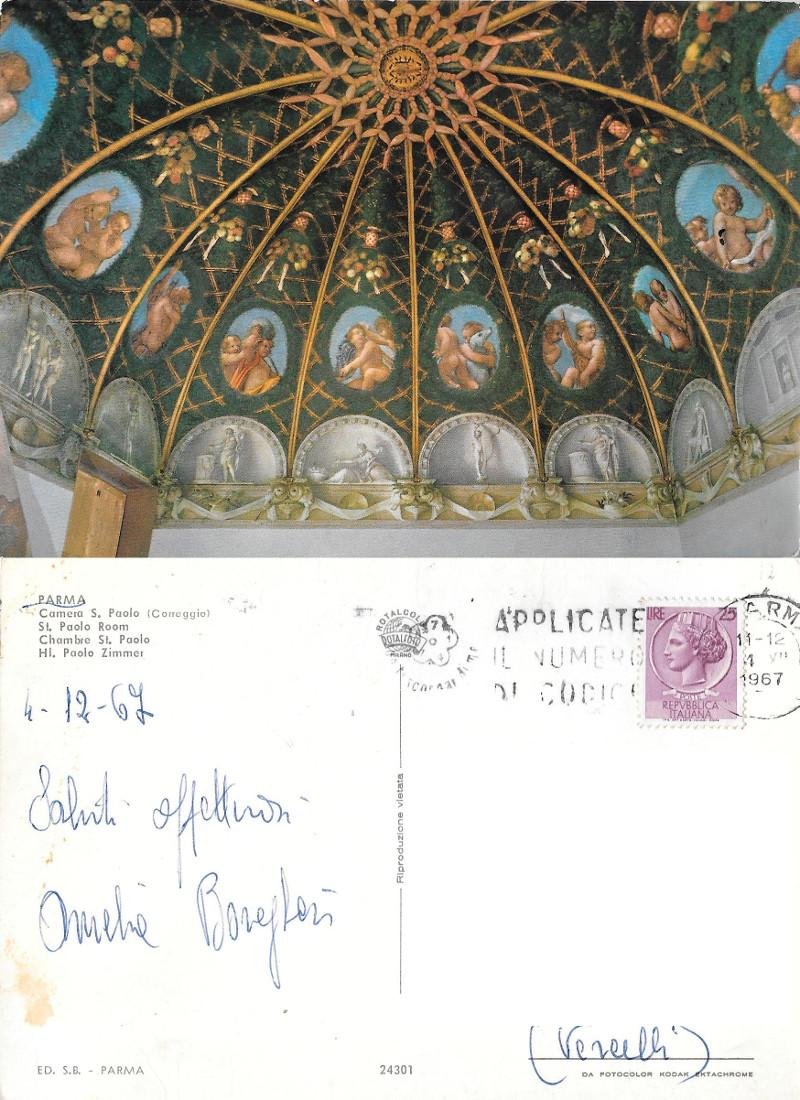 PARMA
Camera S. Paolo (Correggio)
St. Paolo Room
Chambre St. Paolo
Hl. Paolo Zimmer
ROTALCOLOR
ROTALFOTO
MILANO
APPLICATE
IL NUMERO
DI CODICE
LIRE 25
POSTE
REPVBBLICA
ITALIANA
ARM
11-12
1967
4-12-67
Saluti affettuosi
Amelia
Riproduzione vietata
(Vercelli)
ED. S.B. - PARMA
24301
DA FOTOCOLOR KODAK EKTACHROME